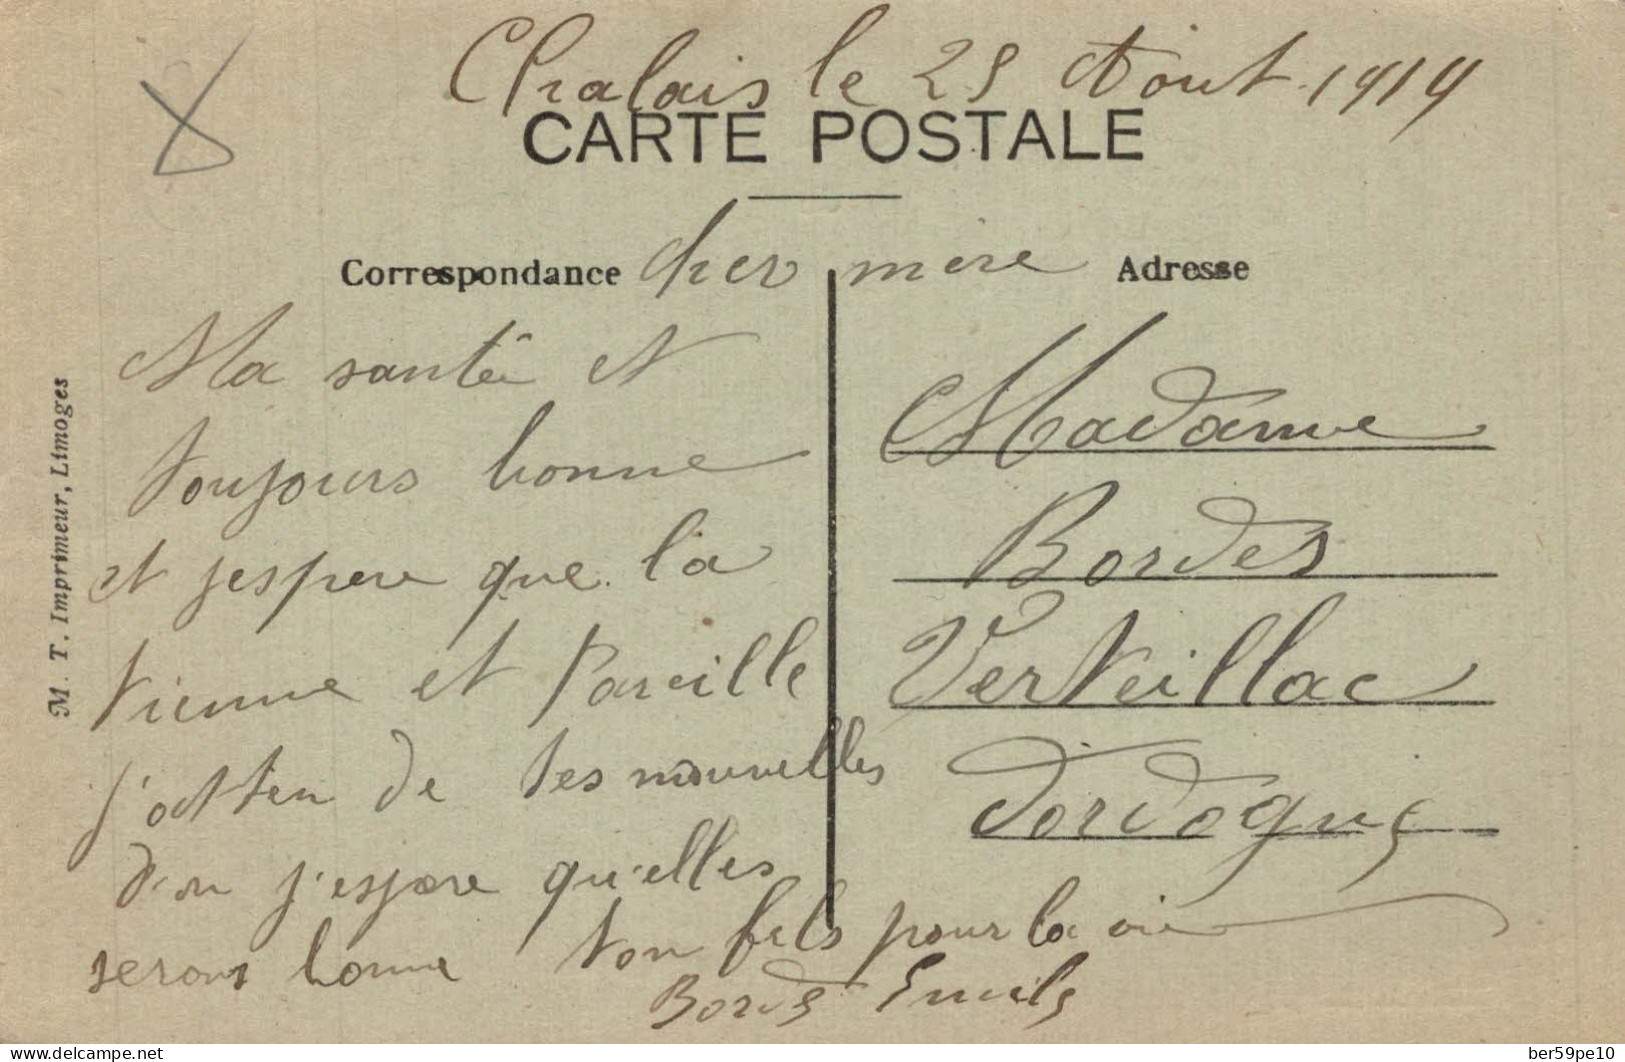 Chalais le 25 Aout 1919
CARTE POSTALE
Correspondance
cher mère
Adresse
Ma santé et
toujours bonne
et jespere que la
tienne et Pareille
j'atten de tes nouvelles
d'on j'espere qu'elles
serons bonne
ton fils pour la vie
Bordes Emile
Madame
Bordes
Verteillac
Dordogne
M. T. Imprimeur, Limoges
delcampe.net
ber59pe10